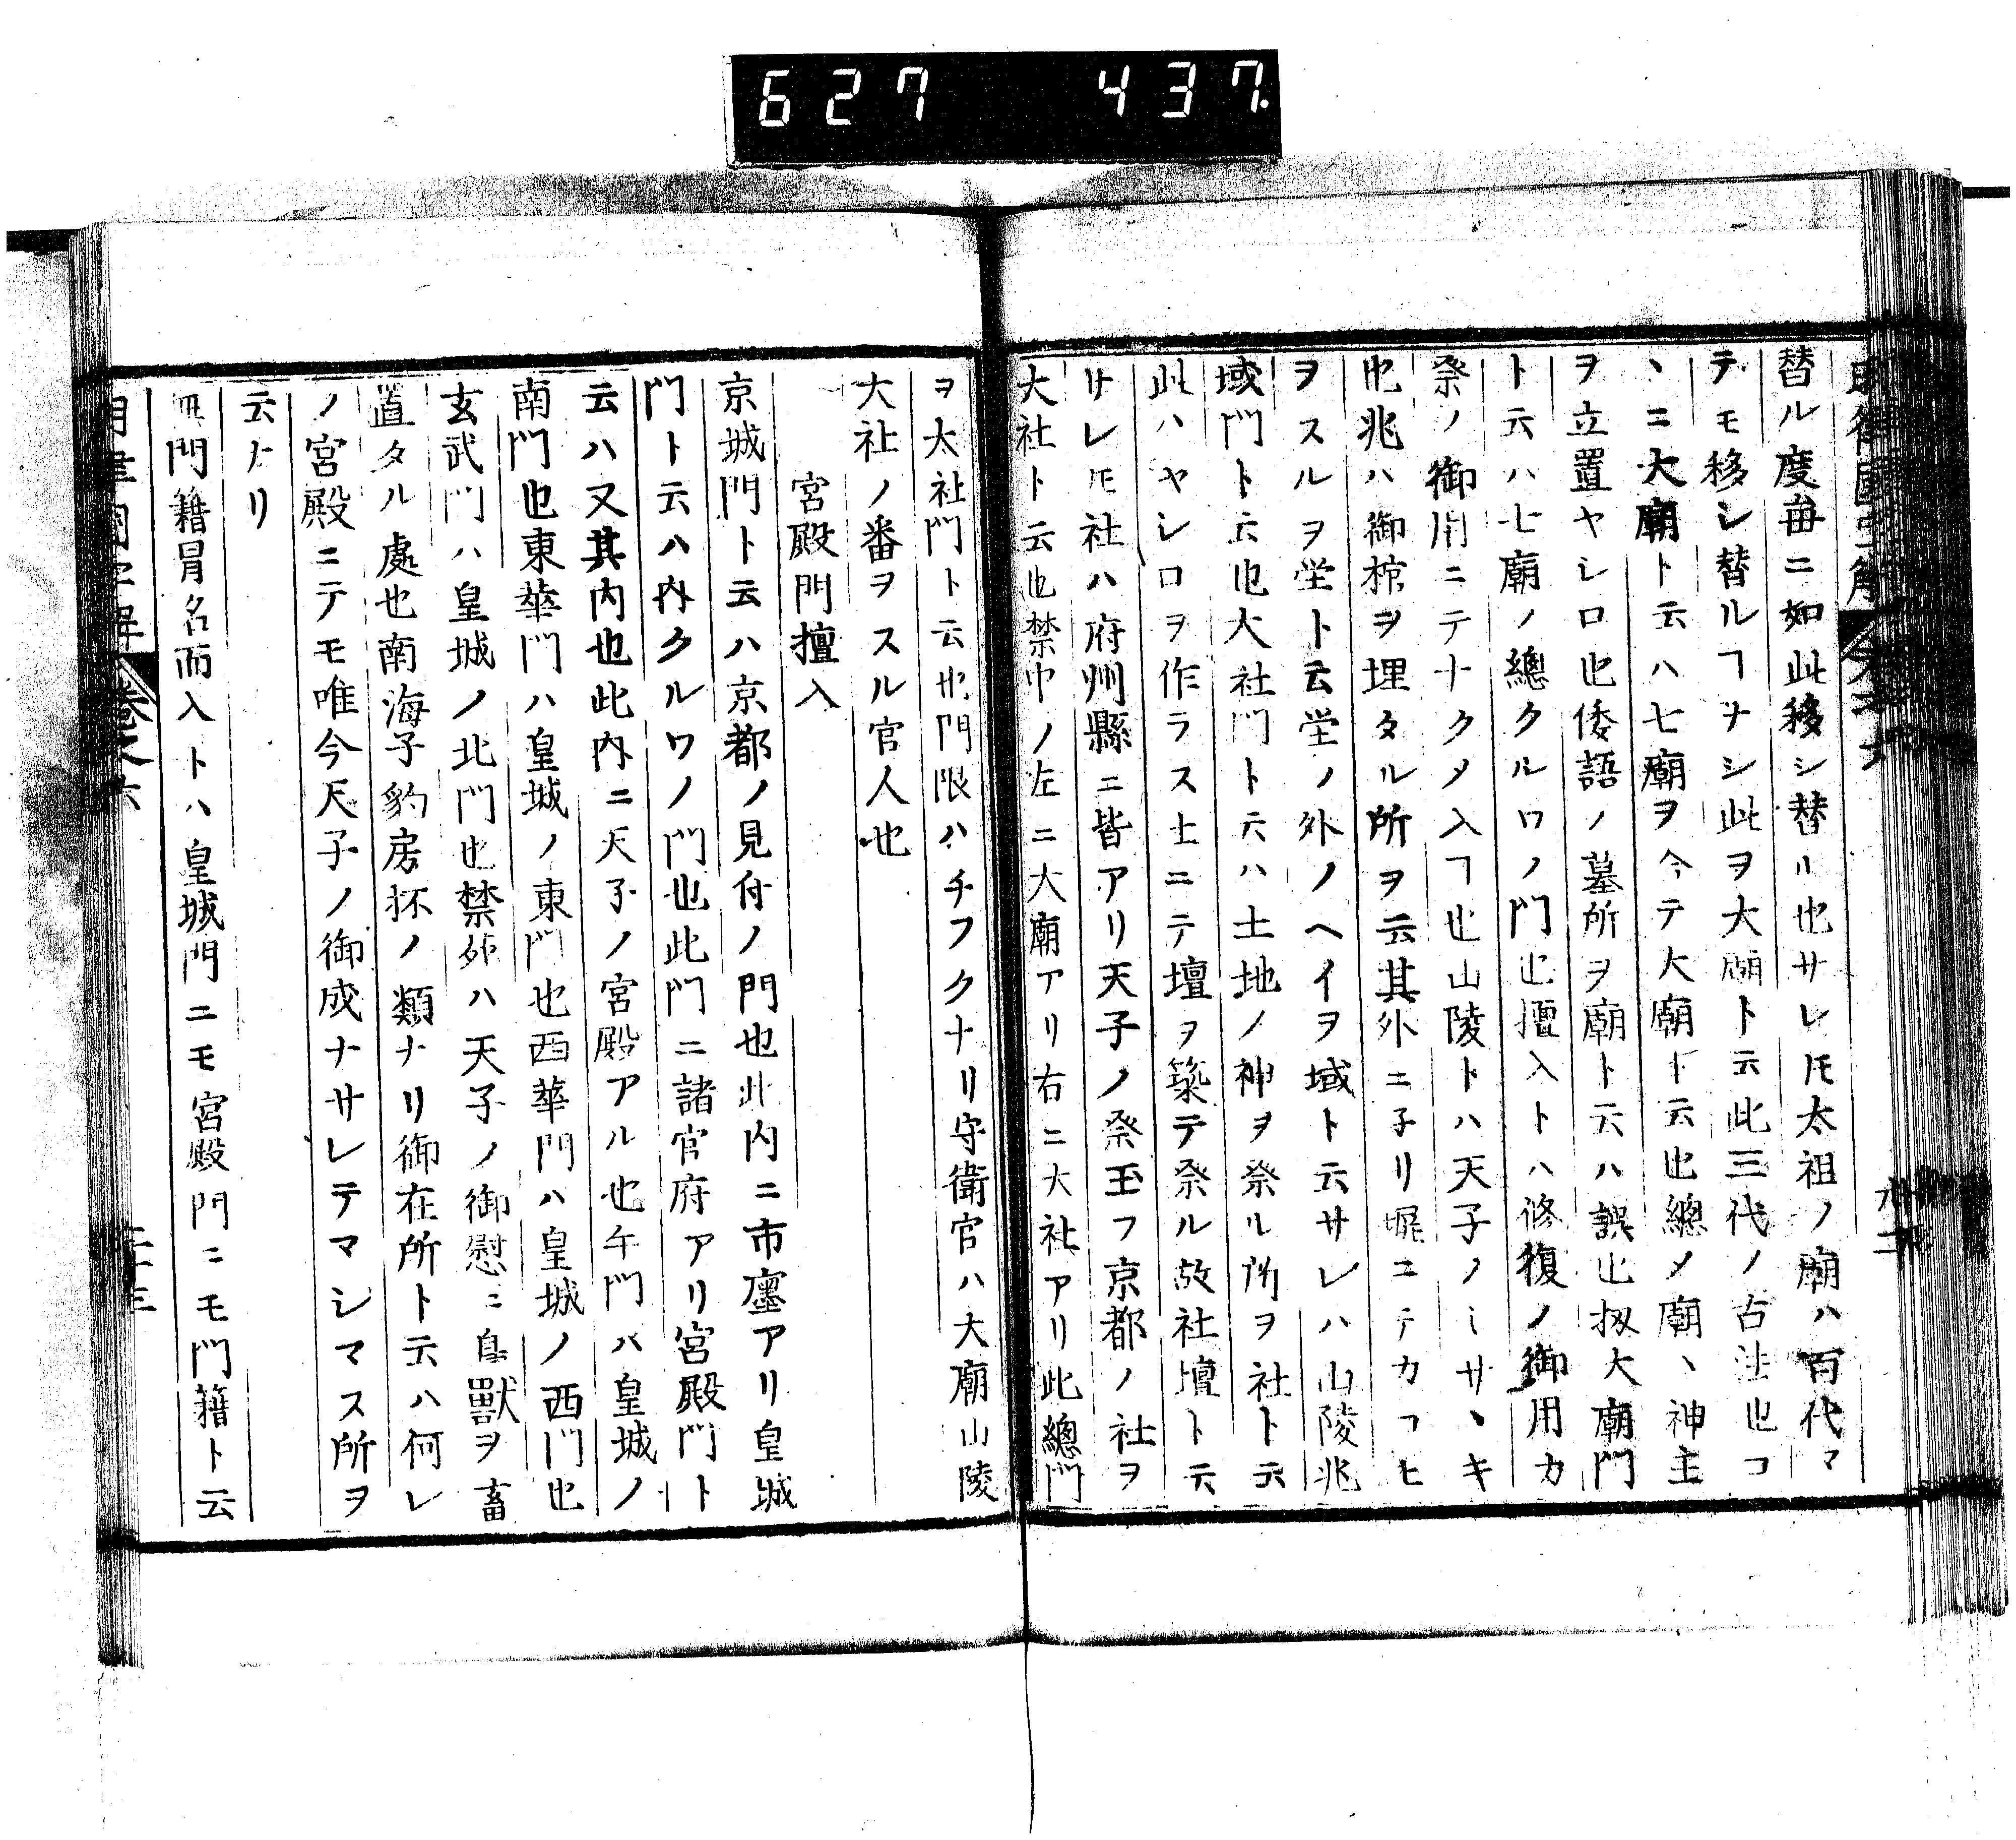 627 437
替ル度毎ニ如此移シ替ル也サレ𪜈太祖ノ廟ハ百代マ
テモ移シ替ルヿナシ此ヲ大廟ト云此三代ノ古法也コ
ヽニ大廟ト云ハ七廟ヲ今テ大廟ト云也總メ廟ヽ神主
ヲ立置ヤシロ也倭語ノ墓所ヲ廟ト云ハ誤也扨大廟門
ト云ハ七廟ノ總クルワノ門也擅入トハ修復ノ御用カ
祭ノ御用ニテナクメ入ヿ也山陵トハ天子ノミサヽキ
也兆ハ御棺ヲ埋タル所ヲ云其外ニ子リ塀ニテカコヒ
ヲスルヲ塋ト云塋ノ外ノヘイヲ域ト云サレハ山陵兆
域門ト云也大社門ト云ハ土地ノ神ヲ祭ル所ヲ社ト云
此ハヤシロヲ作ラス土ニテ壇ヲ築テ祭ル故社壇ト云
サレ𪜈社ハ府州縣ニ皆アリ天子ノ祭玉フ京都ノ社ヲ
大社ト云也禁中ノ左ニ大廟アリ右ニ大社アリ此總門
ヲ太社門ト云也門限ハチフクナリ守衛官ハ大廟山陵
大社ノ番ヲスル官人也
宮殿門擅入
京城門ト云ハ京都ノ見付ノ門也此内ニ市廛アリ皇城
門ト云ハ内クルワノ門也此門ニ諸官府アリ宮殿門ト
云ハ又其内也此内ニ天子ノ宮殿アル也午門ハ皇城ノ
南門也東華門ハ皇城ノ東門也西華門ハ皇城ノ西門也
玄武門ハ皇城ノ北門也禁苑ハ天子ノ御慰ニ鳥獸ヲ畜
置タル處也南海子豹房抔ノ類ナリ御在所ト云ハ何レ
ノ宮殿ニテモ唯今天子ノ御成ナサレテマシマス所ヲ
云ナリ
無門籍冐名而入トハ皇城門ニモ宮殿門ニモ門籍ト云
卷之六